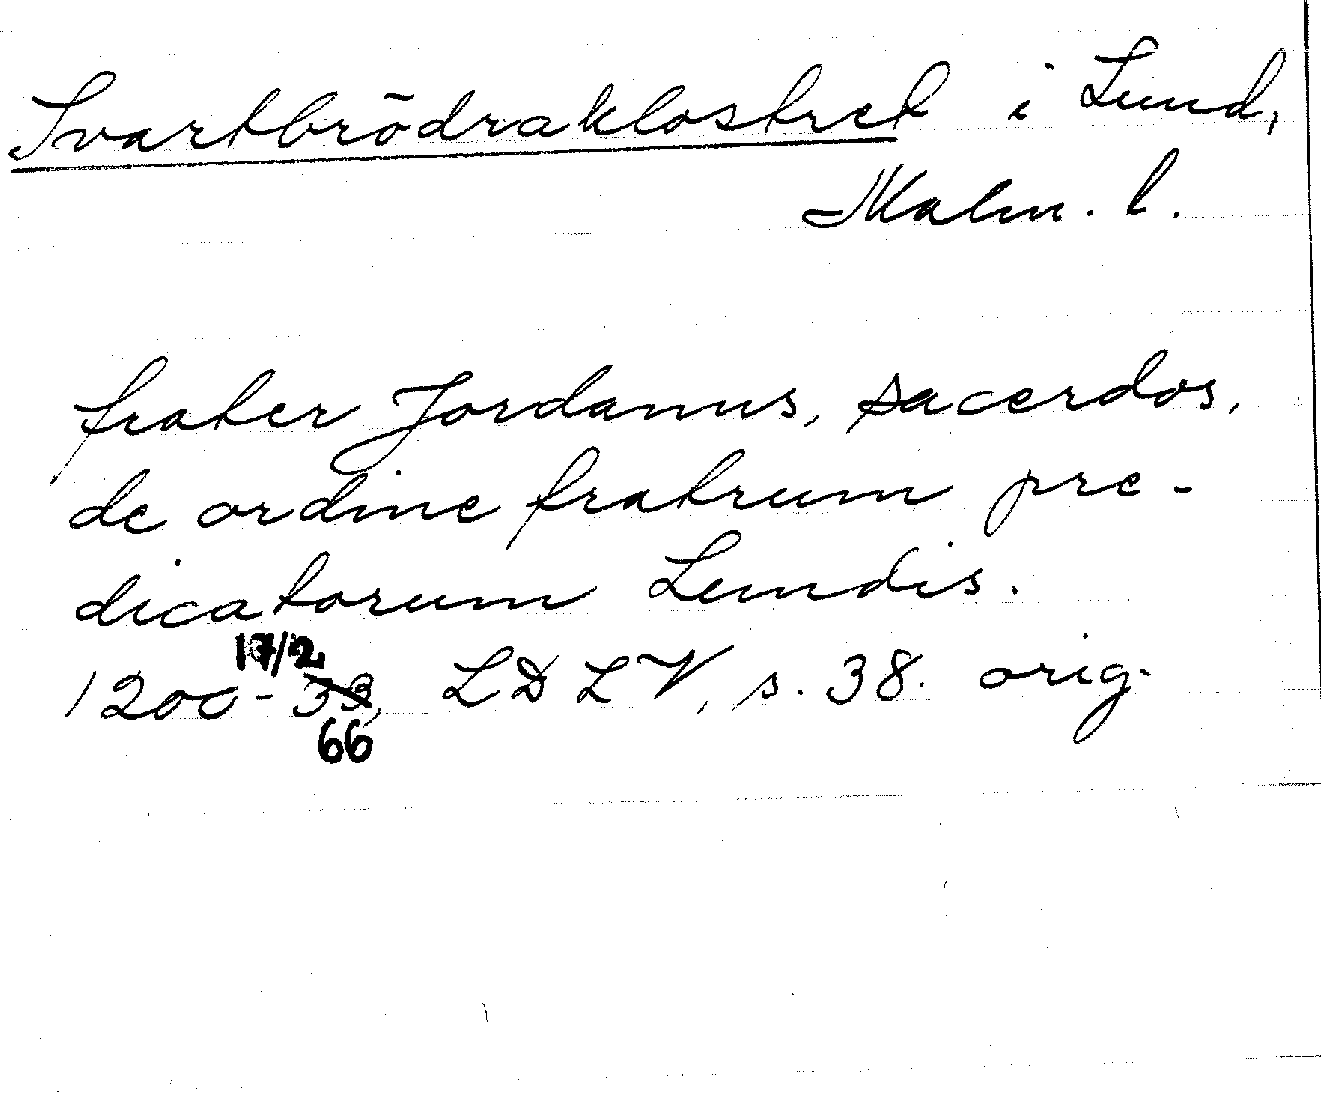 Svartbrödraklostret i Lund,
Malm. l.
frater Jordanus, sacerdos,
de ordine fratrum pre-
dicatorum Lundis.
17/2
1200-33, LDLV, s. 38. orig.
66